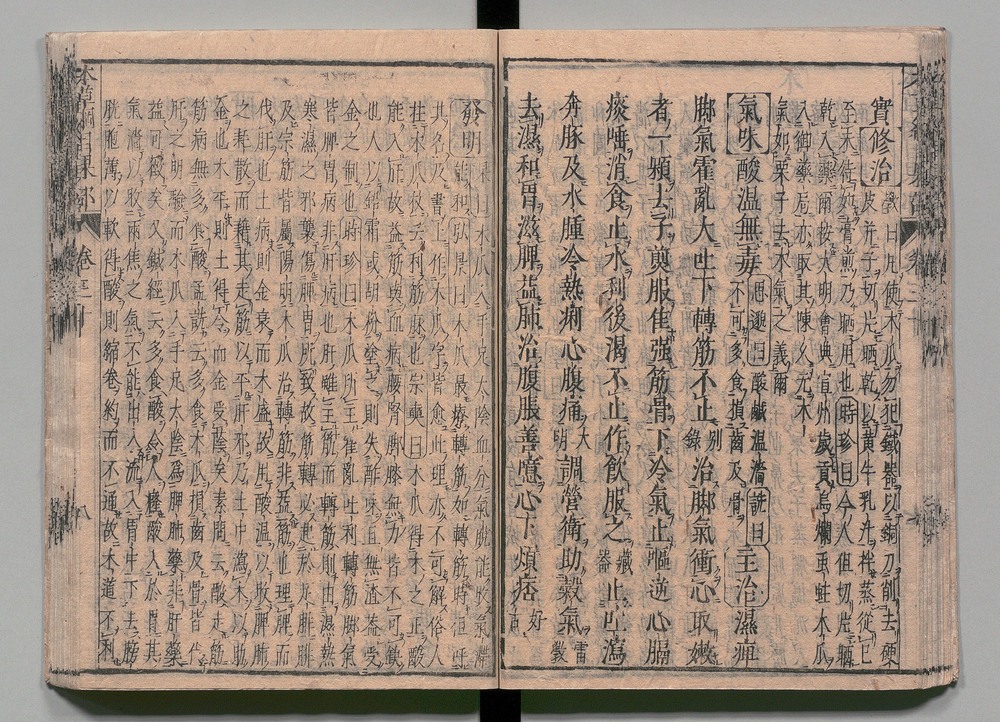 實修治 斅曰凡使木瓜勿犯鐵器以銅刀削去硬
皮并子切片晒乾以黃牛乳汁拌蒸從巳
至未待如膏煎乃晒用也時珍曰今人但切片晒
乾入藥爾按大明會典宣州歲貢烏爛蟲蛀木瓜
入御藥局亦取其陳久無木
氣如栗子去木氣之義爾
氣味酸溫無毒思邈曰酸鹹溫濇詵曰不可多食損齒及骨主治濕痺
脚氣霍亂大吐下轉筋不止別錄治脚氣衝心取嫩
者一顆去子煎服佳强筋骨下冷氣止嘔逆心膈
痰唾消食止水利後渴不止作飲服之藏器止吐瀉
奔豚及水腫冷熱痢心腹痛大明調營衛助穀氣雷斅
去濕和胃滋脾益肺治腹脹善噫心下煩痞好古
發明杲曰木瓜入手足太陰血分氣脫能收氣滯
能和弘景曰木瓜最療轉筋如轉筋時但呼
其名及書上作木瓜字皆愈此理亦不可解俗人
拄木瓜杖云利筋脉也宗奭曰木瓜得木之正酸
能入肝故益筋與血病腰腎脚膝無力皆不可缺
也人以鉛霜或胡粉塗之則失酢味且無渣蓋受
金之制也時珍曰木瓜所主霍亂吐利轉筋脚氣
皆脾胃病非肝病也肝雖主筋而轉筋則由濕熱
寒濕之邪襲傷脾胃所致故筋轉必起於足腓腓
及宗筋皆屬陽明木瓜治轉筋非益筋也理脾而
伐肝也土病則金衰而木盛故用酸溫以收脾肺
之耗散而藉其走筋以平肝邪乃土中瀉木以助
金也木平則土得令而金受蔭矣素問云酸走筋
筋病無多食酸孟詵云多食木瓜損齒及骨皆伐
肝之明驗而木瓜入手足太陰爲脾肺藥非肝藥
益可徵矣又鍼經云多食酸令人癃酸入於胃其
氣濇以收兩焦之氣不能出入流入胃中下去膀
胱胞薄以軟得酸則縮卷約而不通故水道不利